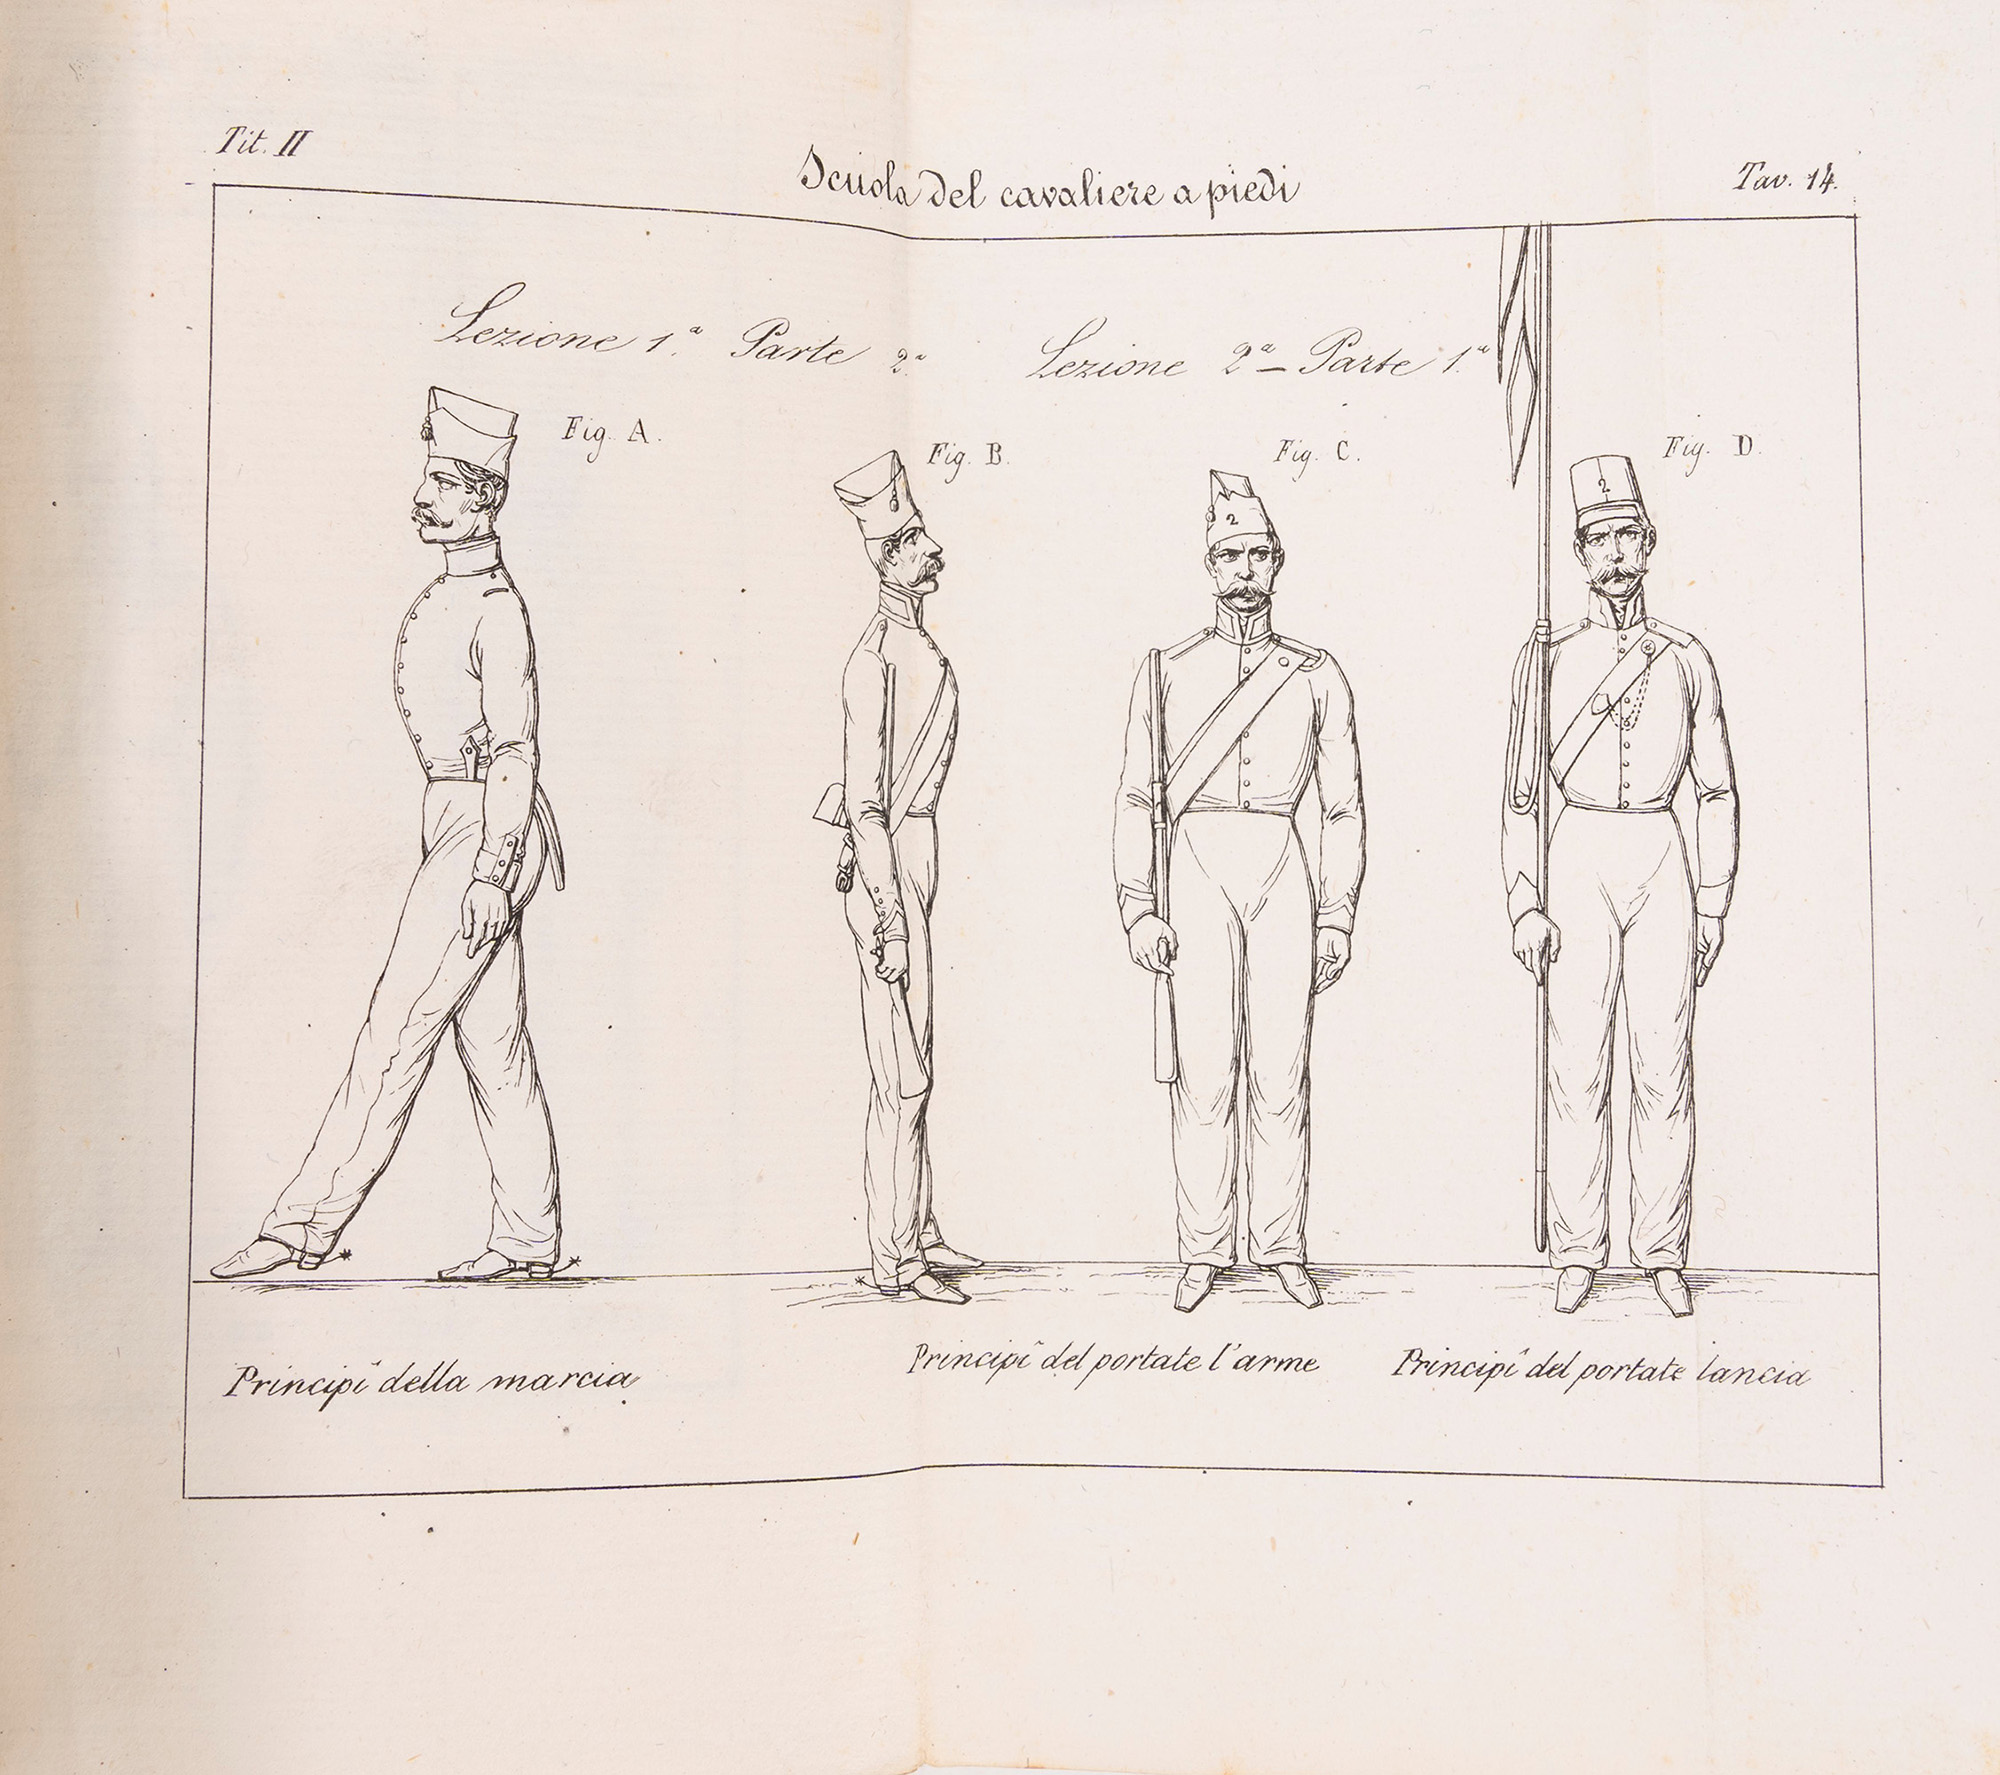 Tit. II
Scuola del cavaliere a piedi
Tav. 14.
Lezione 1.ª Parte 2.ª
Lezione 2ª – Parte 1.ª
Fig. A.
Fig. B.
Fig. C.
Fig. D.
2
2
Principî della marcia
Principî del portate l'arme
Principî del portate lancia